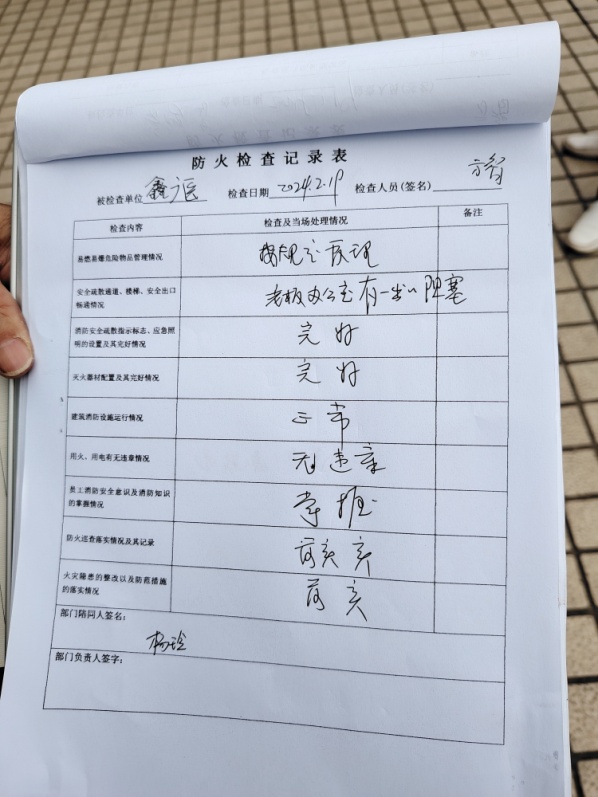 防火检查记录表
被检查单位 鑫 检查日期 2024.2.19 检查人员(签名)
检查内容 检查及当场处理情况 备注
易燃易爆危险物品管理情况
安全疏散通道、楼梯、安全出口 老板办公室有一出 阻塞
畅通情况
消防安全疏散指示标志、应急照 完好
明的设置及其完好情况
灭火器材配置及其完好情况 完好
建筑消防设施运行情况 正常
用火、用电有无违章情况 无违章
员工消防安全意识及消防知识 掌握
的掌握情况
防火巡查落实情况及其记录 落实
火灾隐患的整改以及防范措施 落实
的落实情况
部门陪同人签名:
杨玲
部门负责人签字: